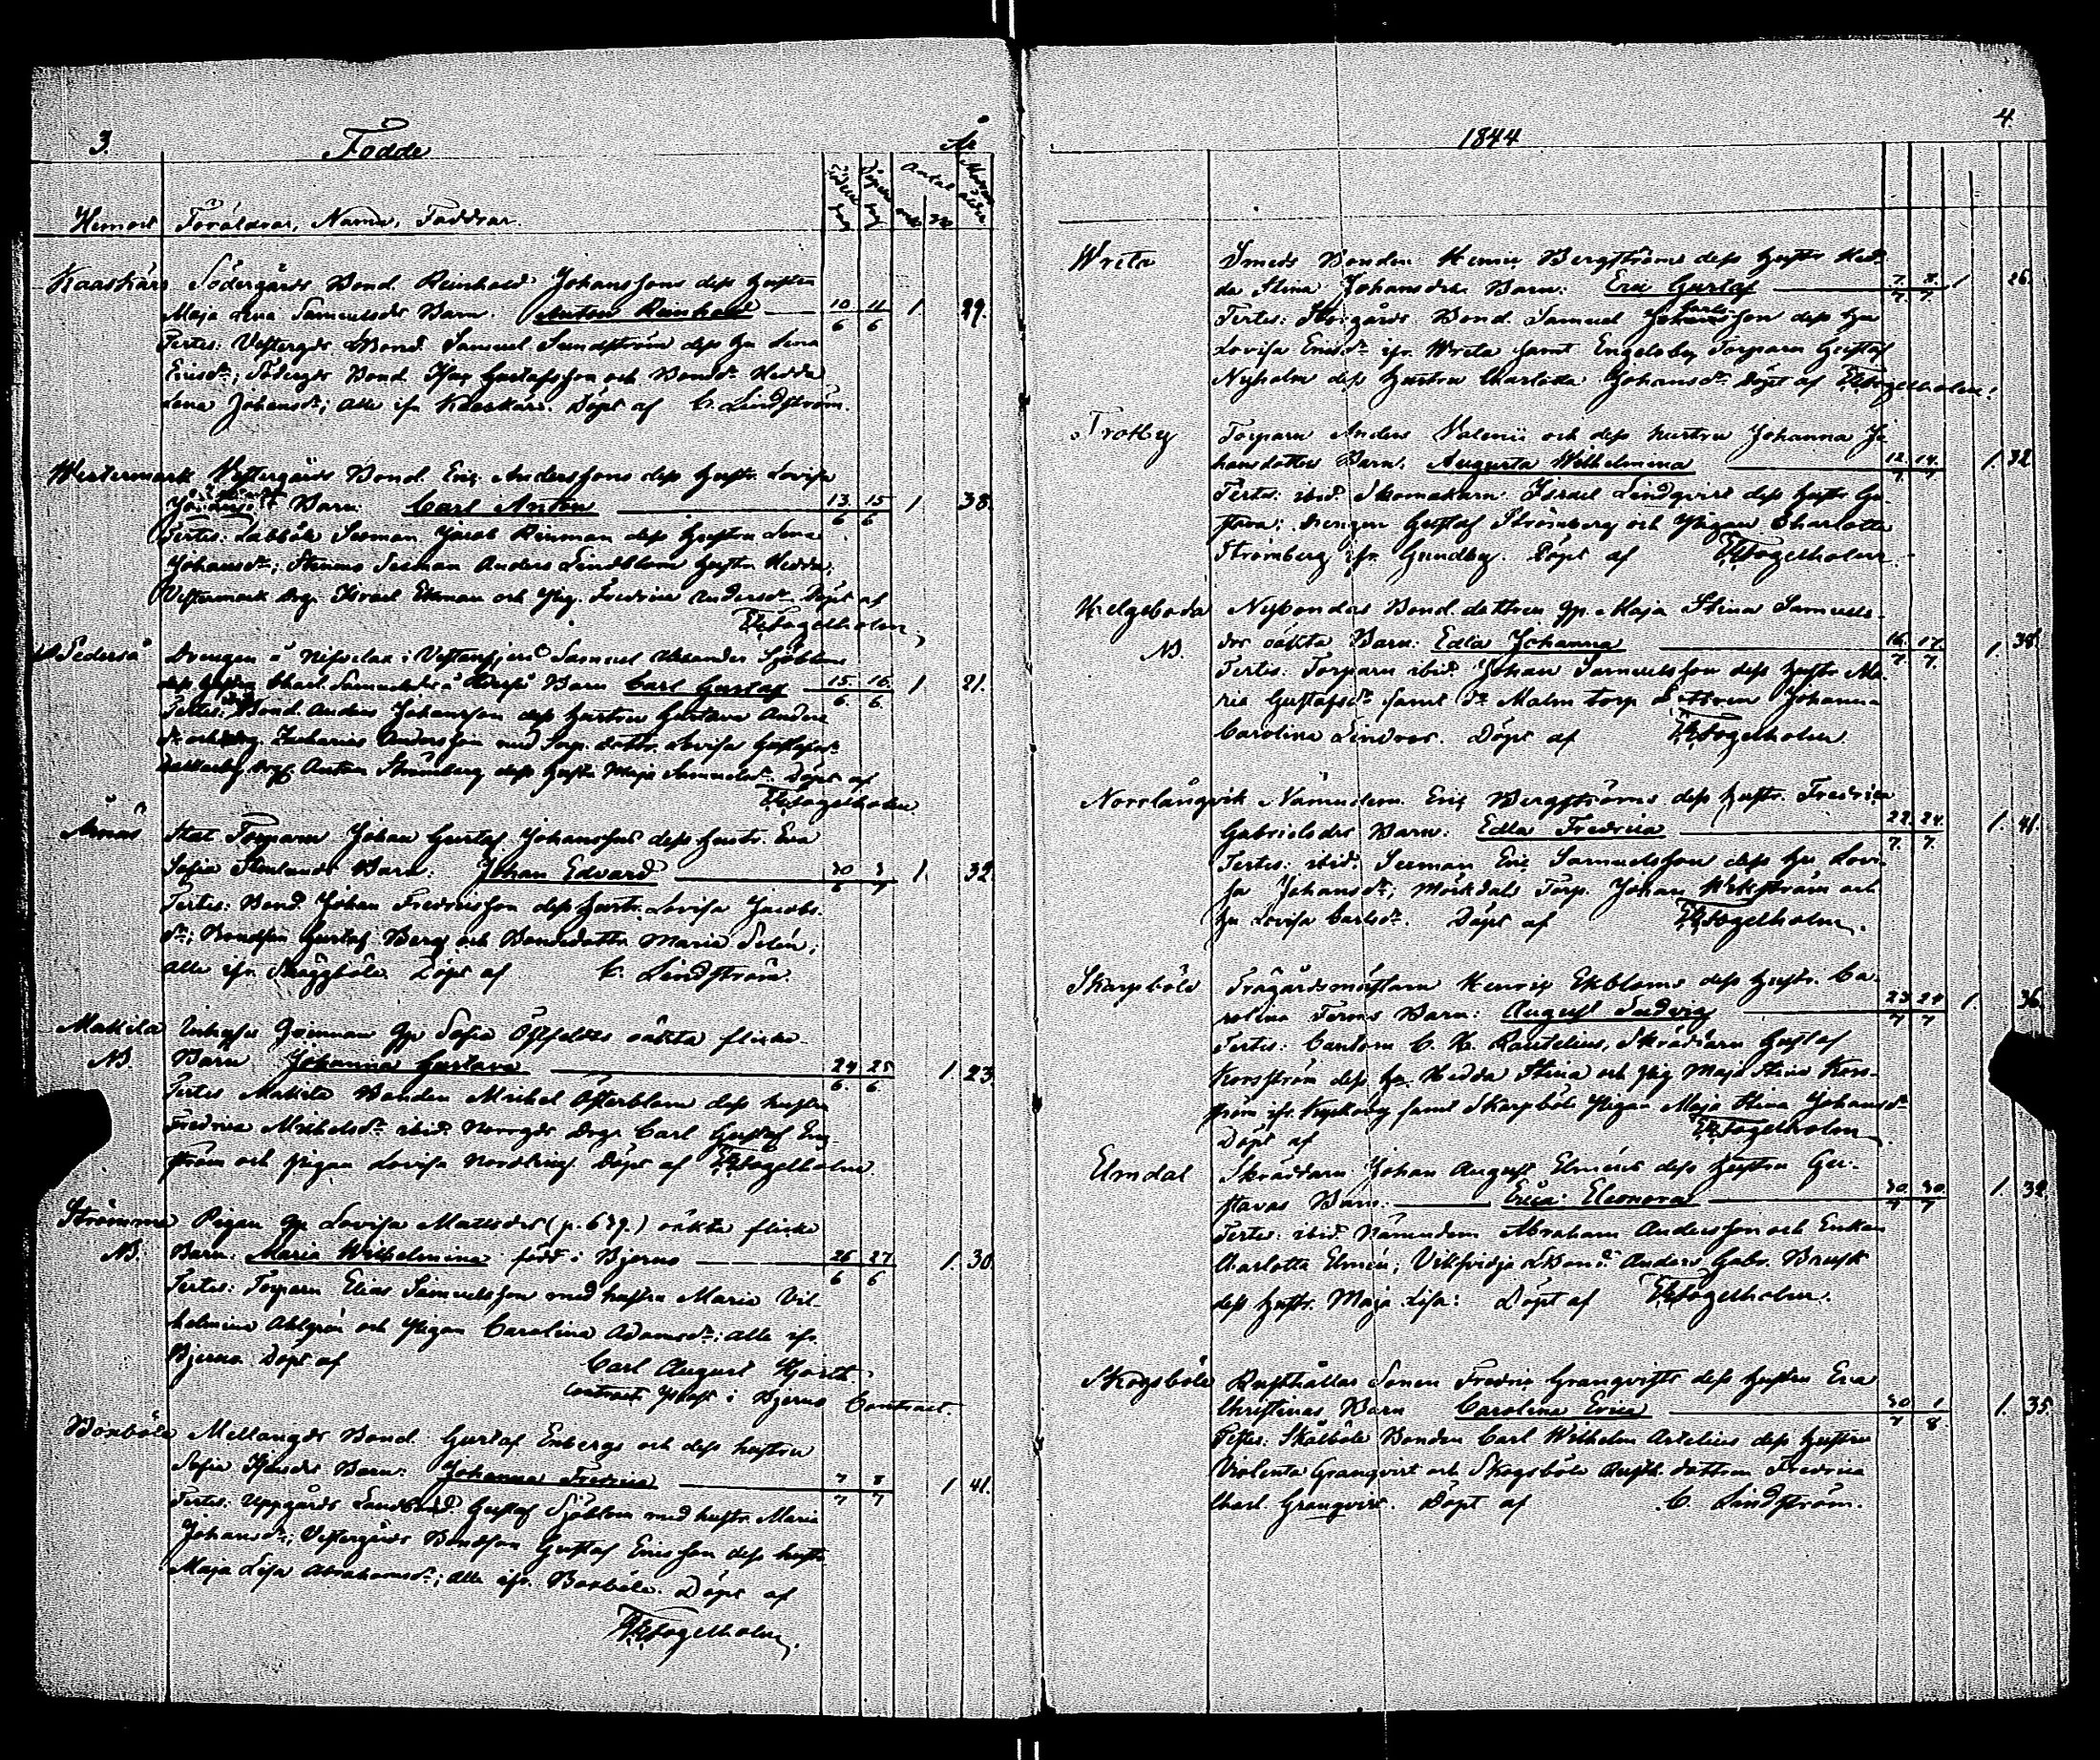 3. Födde År
Hemort Föräldrar, Namn, Faddrar. Antal
Kaaskärs Södergårds Bond. Reinhold Johanssons dess hustru
Maja Lena Samuelsdr Barn. Anton Reinhold 10/6 11/6 1 29.
Testes: Vestergds Bond. Samuel Sundström dess hu Lena
Ericsdr; Södergds Bond. Isac Gustafsson och Bondr Hedda
Lena Johansdr; alla ifr. Kaaskärs. Döpt af C. Lindström.
Westermark Vestergårds Bond. Eric Anderssons dess hustr. Lovisa
Barn Carl Anton 13/6 15/6 1 38.
Testes: Labböle Seman Jacob Reinman dess hustru Lena
Johansdr; Seman Anders Lindblom hustr. Hedda;
Vestermark drg. Israel Ekman och Pig. Fredrica Andersdr. Döpt af
Fogelholm
Pederså Drengen i Vestanfjerd Samuel Alexander Sjöbloms
dess hustru Charl. Samuelsdr Barn Carl Gustaf 15/6 16/6 1 21.
Testes: Bond. Anders Johansson dess hustru Gustava Anders
dr och drg. Zacharias Andersson med Torp. dottr. Lovisa Gustafsdr
drg. Anton Strömberg dess hustr. Maja Samuelsdr. Döpt af
Fogelholm
Arnäs Stat Torparen Johan Gustaf Johanssons dess hustr. Eva
Sofia Stenlunds Barn: Johan Edvard 30/6 3/7 1. 32.
Testes: Bond. Johan Fredricsson dess hustr. Lovisa Jacobs-
dr; Bondson Gustaf Berg och Bondedottr Maria Selén;
alla ifr. Skäggböle. Döpt af C. Lindström.
Makila Qvinnan Gp. Sofia oäkta flicke
NB. Barn Johanna Gustava 24/6 25/6 1. 23.
Testes Makila Bonden Mickel Österblom dess hustru
Fredrica Mickelsdr ibid. Norrgds drg. Carl Gustaf Eng
ström och Pigan Lovisa Nordling. Döpt af Fogelholm.
Strömma Pigan Gp. Lovisa Mattsdrs (p. 639.) oäkta flicke
NB. Barn: Maria Wilhelmina född i Bjerno 26/6 27/6 1. 30.
Testes: Torparn Elias Samuelsson med hustru Maria Vil-
helmina Ahlgrén och Pigan Carolina Adamsdr; alla ifr.
Bjerno. Döpt af Carl August Hjorth
Contract. i Bjerno Contract.
Böxböle Mellangds Bond. Gustaf Enbergs och dess hustru
Sofia Isacsdrs Barn: Johanna Fredrica 7/7 8/7 1 41.
Testes: Uppgårds Landbond. Gustaf Sjöblom med hustr. Maria
Johansdr; Vestergårds Bondson Gustaf Ericsson dess hustr.
Maja Lisa Abrahamsdr; alla ifr. Böxböle. Döpt af
Fogelholm.
1844 4.
Wreta Smeds Bonden Henric Bergströms dess hustr. Hed-
da Stina Johansdrs Barn: Eric Gustaf 7/7. 8/7. 1 26.
Testes: Storgårds Bond. Samuel Carlsson dess hu
Lovisa Ericsdr ifr. Wreta samt Engelsby Torparn Gustaf
Nyholm dess hustru Charlotta Johansdr. Döpt af Fogelholm.
Trotby Torparn Anders Valenii och dess hustru Johanna Jo-
hansdotters Barn. Augusta Wilhelmina 12/7 14/7 1. 32
Testes: ibid. Skomakarn Israel Lindqvist dess hustr. Gu-
stava; drengen Gustaf Strömberg och Pigan Charlotta
Strömberg ifr. Gundby. Döpt af Fogelholm.
Helgeboda Nybondas Bond. dottren gp. Maja Stina Samuels-
NB. drs oäkta Barn: Edla Johanna 16/7. 17/7. 1. 38.
Testes: Torparn ibid. Johan Samuelsson dess hustr. Ma-
ria Gustafsdr samt Malm torp dottren Johanna
Carolina Lindros. Döpt af Fogelholm.
Norrlångvik Nämndem. Eric Bergströms dess hustr. Fredrica
Gabrielsdrs Barn: Edla Fredrica 22/7. 24/7. 1. 41.
Testes: ibid. Seeman Eric Samuelsson dess hu Lovi-
sa Johansdr; Mörkdals Torp. Johan Wikström och
hu Lovisa Carlsdr. Döpt af Fogelholm.
Skarpböle Trägårdsmästarn Henric Ekbloms dess hustr. Ca-
rolina Ferms Barn: August Ludvig 23/7 24/7 1. 36
Testes: Cantorn C. H. Rautelius, Skräddarn Gustaf
Korsström dess hu Hedda Stina och Pig Maja Stina Kors-
ström ifr. Kyrkoby samt Skarpböle Pigan Maja Stina Johansdr
Döpt af Fogelholm
Elmdal Skräddarn Johan August Elméns dess hustru Gu-
stavas Barn: Erica Eleonora 30/7 30/7 1. 32.
Testes: ibid. Nämndem Abraham Andersson och Enkan
Charlotta Elmén; Vikfvidja LBond. Anders Gabr. Brusk
dess hustr. Maja Lisa: Döpt af Fogelholm.
Skogsböle Rusthållar Sonen Fredric Granqvists dess hustru Eva
Christinas Barn Carolina Erica 30/7 1/8 1. 35.
Testes: Skålböle Bonden Carl Wilhelm Artelius dess hustru
Violenta Granqvist och Skogsböle Rusth. dottren Fredrica
Charl. Granqvist. Döpt af C. Lindström.